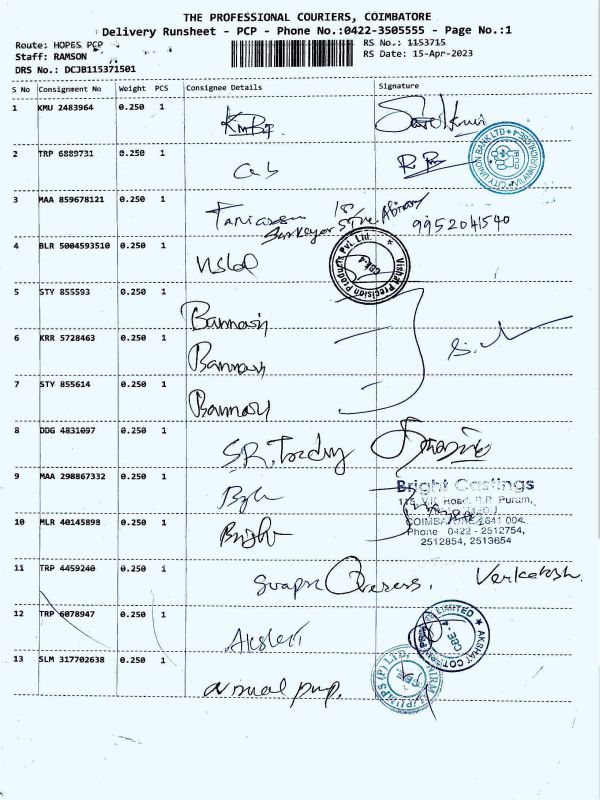 THE PROFESSIONAL COURIERS, COIMBATORE
Delivery Runsheet - PCP - Phone No.:0422-3505555 - Page No.:1
Route: HOPES PCP
RS No.: 1153715
Staff: RAMSON
RS Date: 15-Apr-2023
DRS No.: DCJB115371501
S No Consignment No Weight PCS Consignee Details Signature
1 KMU 2483964 0.250 1
2 TRP 6889731 0.250 1
CITY UNION BANK LTD
3 MAA 859678121 0.250 1
9952041540
4 BLR 5004593510 0.250 1
Vishal Precision Products Pvt. Ltd.
CBE-4
5 STY 855593 0.250 1 Bannari
6 KRR 5728463 0.250 1 Bannari
7 STY 855614 0.250 1 Bannari
8 DDG 4831097 0.250 1
S.R.
9 MAA 298867332 0.250 1
Bright Castings
115, V.K. Road, P.R. Puram,
10 MLR 40145898 0.250 1
COIMBATORE 641 004.
Phone 0422 - 2512754,
2512854, 2513654
11 TRP 4459240 0.250 1
Swapna Overseas. Venkatesh.
12 TRP 6078947 0.250 1
Akshat
AKSHAT LIMITED
CBE - 4
13 SLM 317702638 0.250 1
pump.
PUMPS (P) LTD.